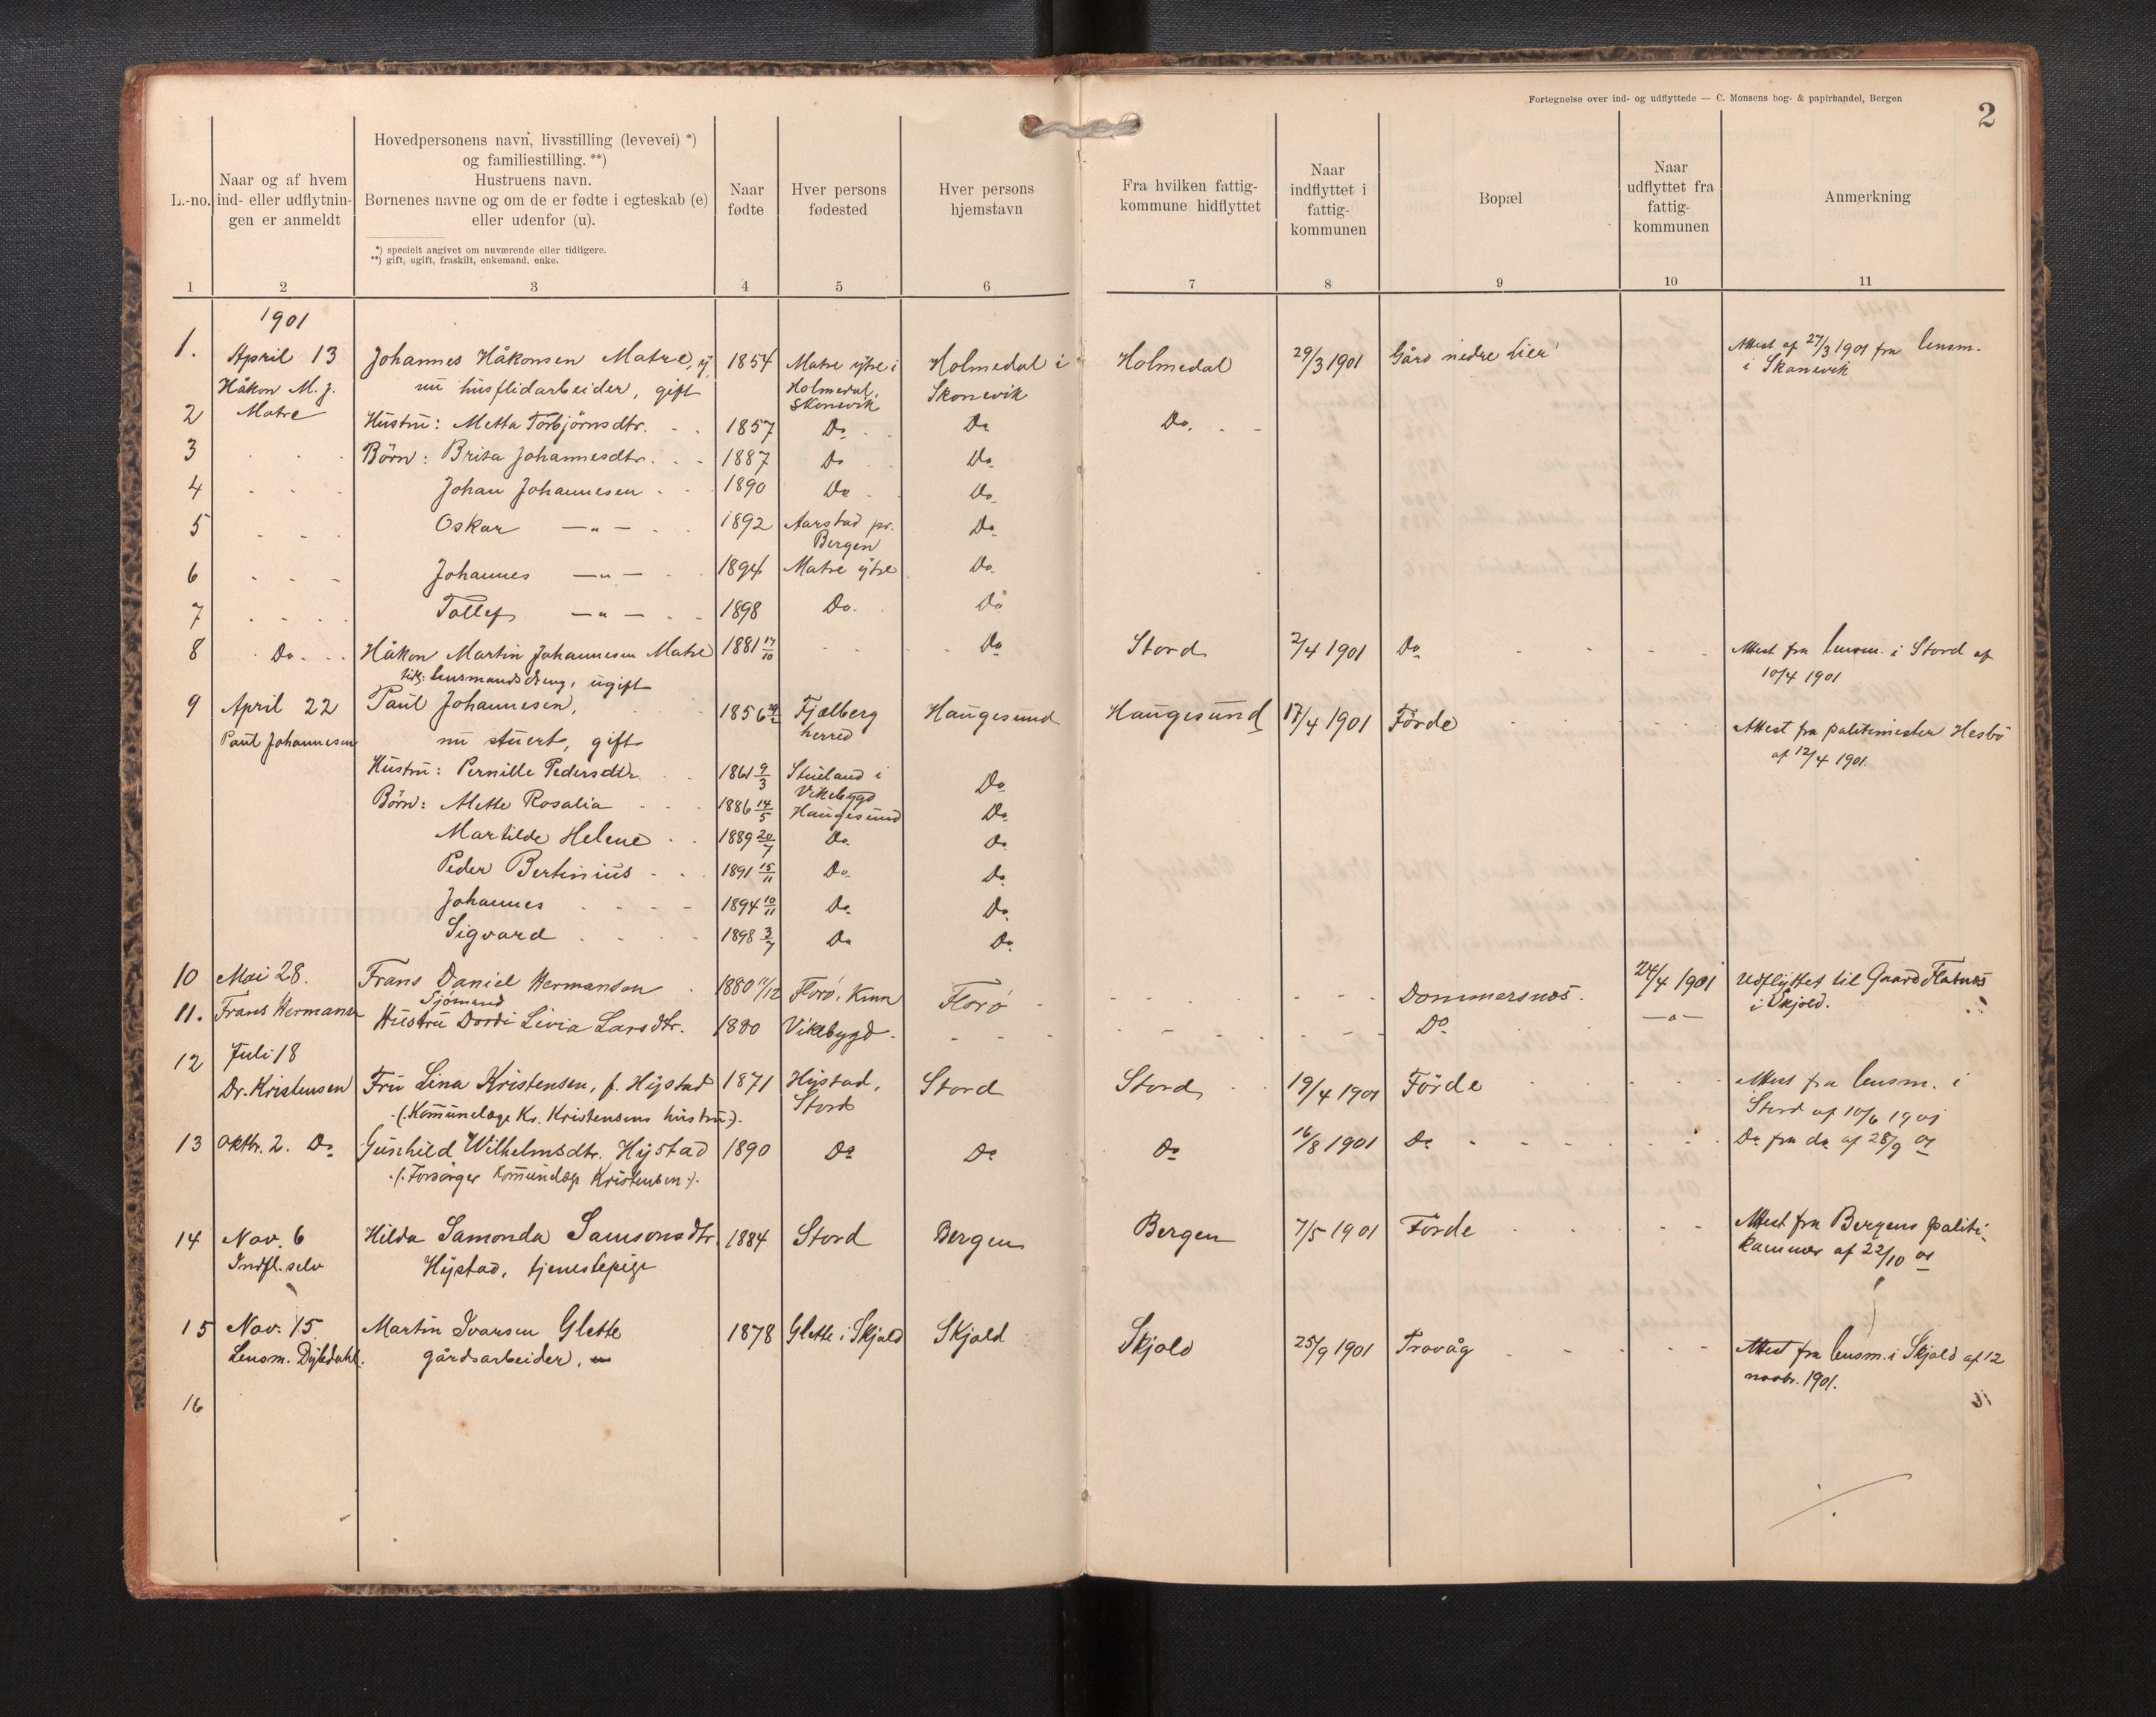 Fortegnelse over ind- og udflyttede — C. Monsens bog- & papirhandel, Bergen
2
L.-no.
Naar og af hvem
ind- eller udflytnin-
gen er anmeldt
Hovedpersonens navn, livsstilling (levevei) *)
og familiestilling. **)
Hustruens navn.
Børnenes navne og om de er fødte i egteskab (e)
eller udenfor (u).
*) specielt angivet om nuværende eller tidligere.
**) gift, ugift, fraskilt, enkemand, enke.
Naar
fødte
Hver persons
fødested
Hver persons
hjemstavn
Fra hvilken fattig-
kommune hidflyttet
Naar
indflyttet i
fattig-
kommunen
Bopæl
Naar
udflyttet fra
fattig-
kommunen
Anmerkning
1 2 3 4 5 6 7 8 9 10 11
1901
1. April 13 Johannes Håkonsen Matre, y. 1854 Matre ytre i Holmedal i Holmedal 29/3 1901 Gård nedre Lier Attest af 27/3 1901 fra lensm.
Håkon M. J. nu husflidarbeider, gift Holmedal, Skonevik i Skånevik
Matre Skonevik
2 Hustru: Metta Torbjørnsdtr. 1857 Do. Do Do.
3 Børn: Brita Johannesdtr. 1887 Do Do.
4 Johan Johannesen 1890 Do Do
5 Oskar —"— 1892 Aarstad pr. Do
Bergen
6 Johannes —"— 1894 Matre ytre Do.
7 Tollef —"— 1898 Do. Do
8 Do. Håkon Martin Johannesen Matre 1881 17/10 Do Stord 2/4 1901 Do Attest fra lensm. i Stord af
tidl. lensmandsdreng, ugift 10/4 1901
9 April 22 Paul Johannesen, 1856 Fjelberg Haugesund Haugesund 17/4 1901 Förde Attest fra politimester Hesbö
Paul Johannesen nu stuert, gift herred af 12/4 1901.
Hustru: Pernille Pedersdtr. 1861 9/3 Stueland i Do
Vikebygd
Børn: Mette Rosalia 1886 14/5 Haugesund Do.
Martilde Helene 1889 20/7 Do. Do.
Peder Bertinius 1891 15/11 Do. Do.
Johannes 1894 10/11 Do. Do.
Sigvard 1898 3/7 Do Do.
10 Mai 28. Frans Daniel Hermansen 1880 11/12 Florö, Kinn Florö Dommersnes. 24/4 1901 Udflyttet til Gaard Flatnes
Sjømand i Skjold.
11. Frans Hermans Hustru Dordi Livia Larsdtr. 1880 Vikebygd. Do —"—
12 Juli 18
Dr. Kristensen Fru Lina Kristensen, f. Hystad 1871 Hystad, Stord Stord 19/4 1901 Förde Attest fra lensm. i
(Kommunelæge Kr. Kristensens hustru). Stord Stord af 10/6 1901
13 Oktbr. 2. Do Gunhild Wilhelmsdtr. Hystad 1890 Do Do Do 16/8 1901 Do Do fra do af 28/9 01
(Forsörger Kommunelæge Kristensen).
14 Nov. 6 Hilda Samonda Samsonsdtr. 1884 Stord Bergen Bergen 7/5 1901 Förde Attest fra Bergens politi-
Indfl. selv Hystad, tjenestepige kammer af 22/10 01
15 Nov. 15 Martin Ivarsen Glette 1878 Glette i Skjold Skjold Skjold 25/9 1901 Trovåg Attest fra lensm. i Skjold af 12
Lensm. Dybdahl. gårdsarbeider, novbr. 1901.
16